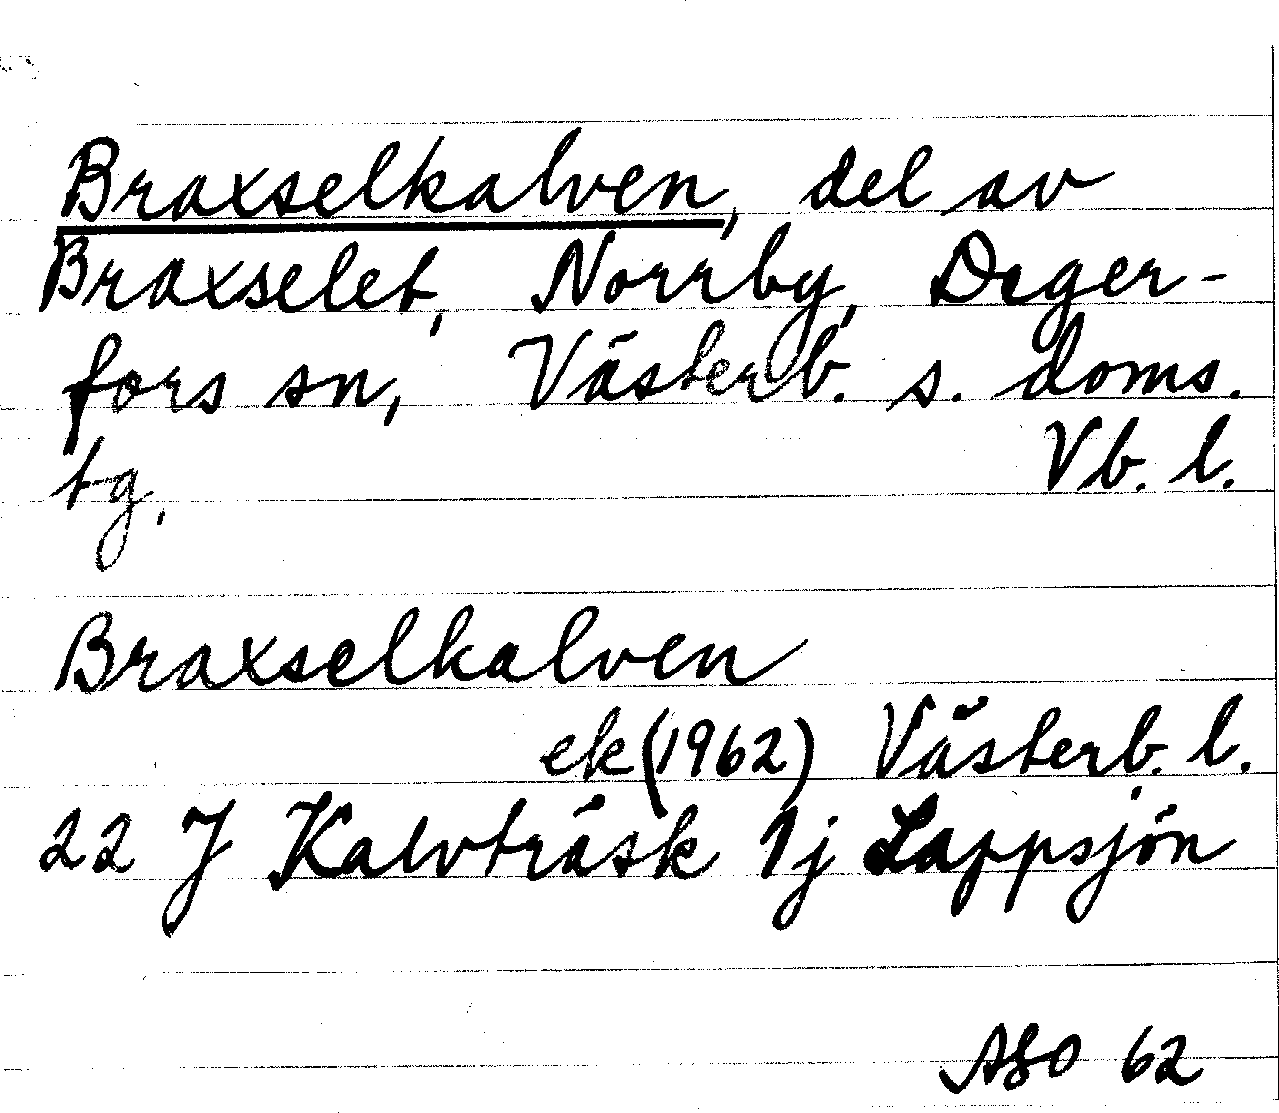 Braxselkalven, del av
Braxselet, Norrby, Deger-
fors sn, Västerb. s. doms.
tg.
Vb. l.
Braxselkalven
ek (1962) Västerb. l.
22 J Kalvträsk 1j Lappsjön
ASO 62